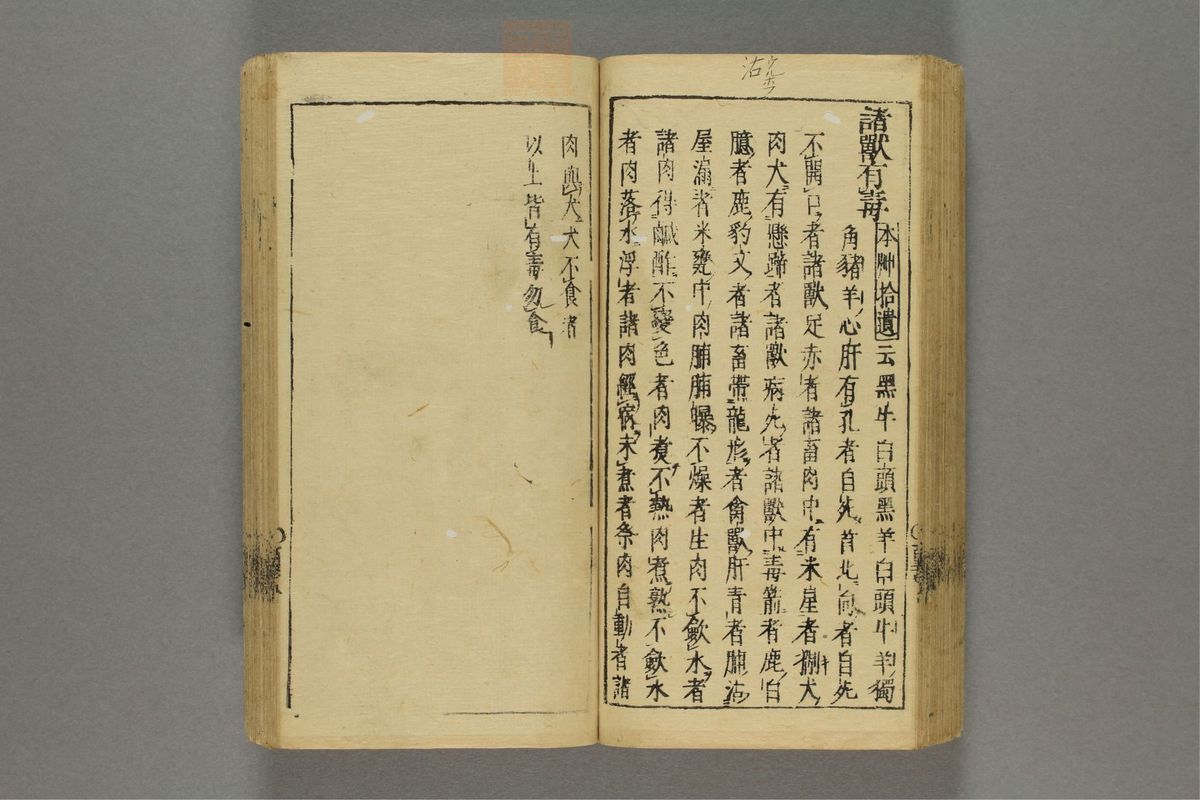 諸獸有毒
本艸拾遺云黑牛白頭黑羊白頭牛羊獨
角豬羊心肝有孔者自死首北向者自死
不開口者諸獸足赤者諸畜肉中有米星者猘犬
肉犬有懸蹄者諸獸病死者諸獸中毒箭者鹿白
臆者鹿豹文者諸畜帶龍形者禽獸肝青者脯沾
屋漏者米甕中肉脯脯曝不燥者生肉不歛水者
諸肉得鹹酢不變色者肉煑不熟肉煮熟不歛水
者肉落水浮者諸肉經宿未煮者祭肉自動者諸
肉與犬犬不食者
以上皆有毒勿食
沾